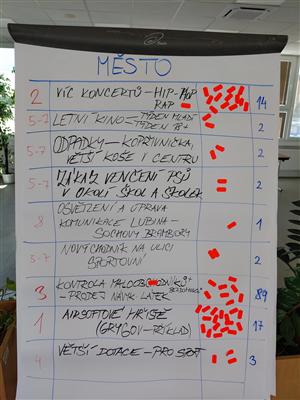 MĚSTO
2 VÍC KONCERTŮ - HIP-HOP 14
RAP
5-7 LETNÍ KINO - TÝDEN MLADÍ 2
TÝDEN 18+
5-7 ODPADKY - KOPŘIVNIČKA, 2
VĚTŠÍ KOŠE V CENTRU
5-7 ZÁKAZ VENČENÍ PSŮ 2
V OKOLÍ ŠKOL A ŠKOLEK
8 OSVĚTLENÍ A ÚPRAVA 1
KOMUNIKACE LUBINA -
SOCHOVY BRAMBORY
5-7 NOVÝ CHODNÍK NA ULICI 2
SPORTOVNÍ
3 KONTROLA MALOOBCHODNÍKŮ
- PRODEJ NÁVYK. LÁTEK
1 AIRSOFTOVÉ HŘIŠTĚ 17
(GRYGOV - PŘÍKLAD)
4 VĚTŠÍ DOTACE - PRO SPORT 3